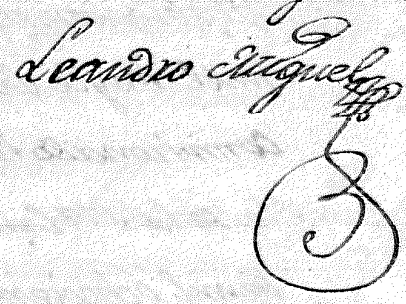 Leandro Miguel